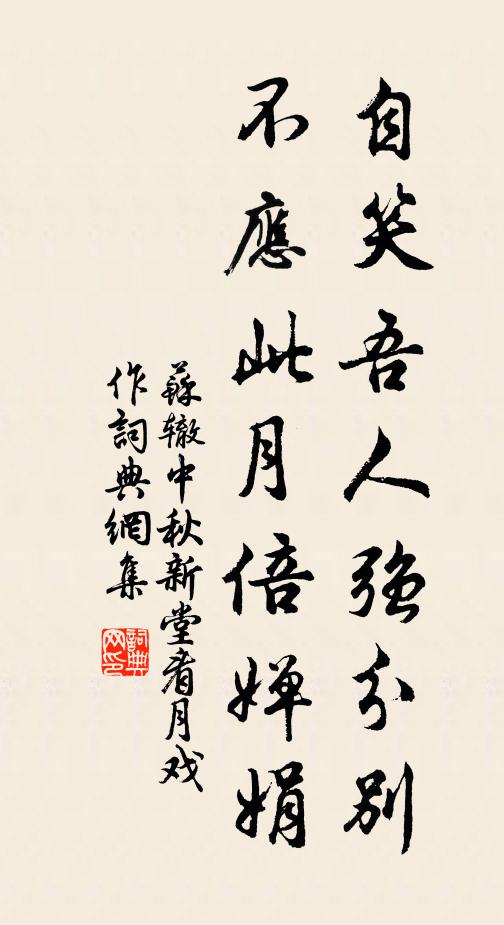 自笑吾人強分别
不應此月倍嬋娟
蘇辙中秋新堂看月戏
作詞典網集
詞典
网印